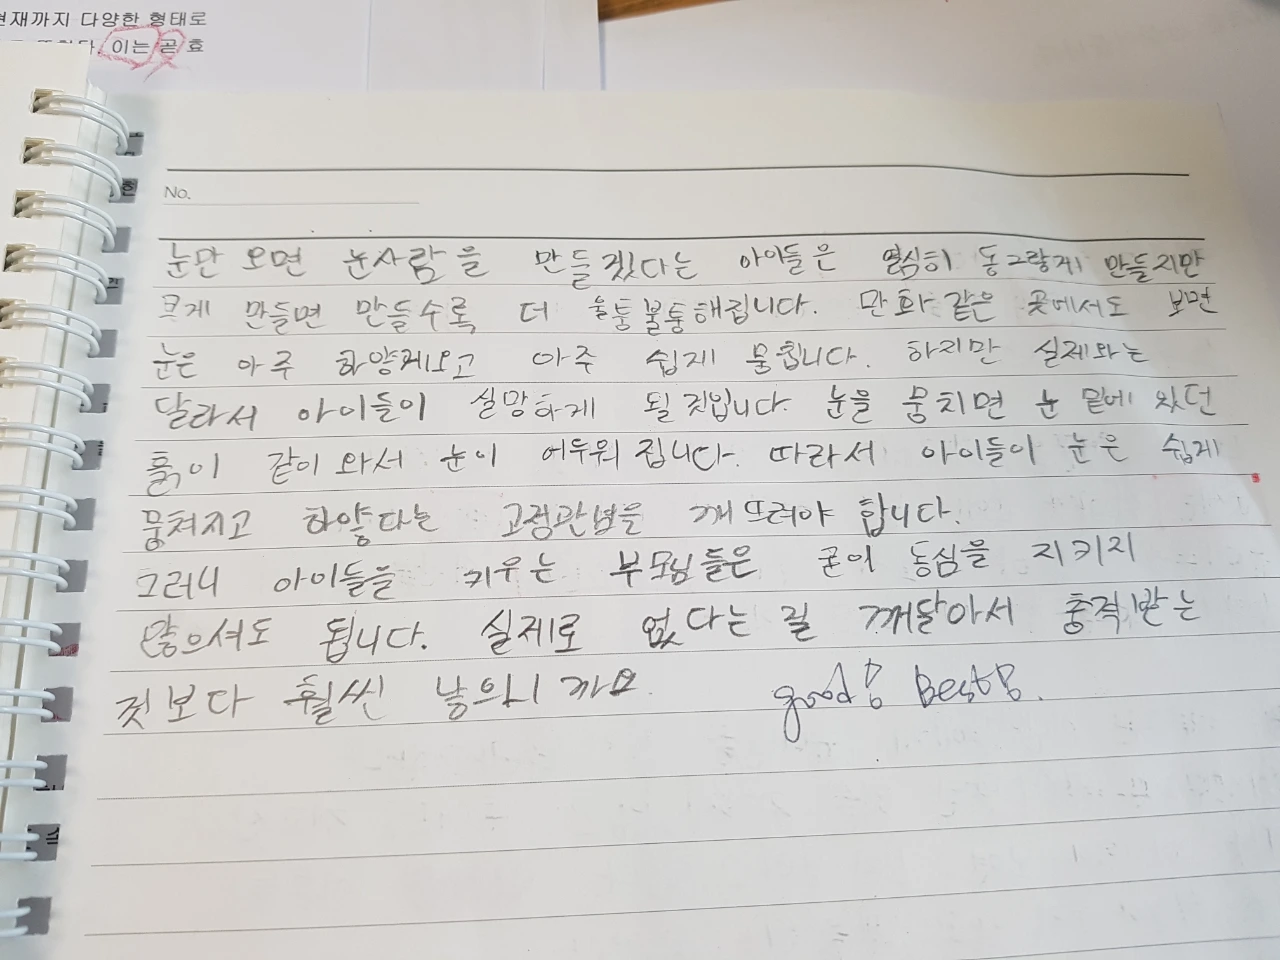 현재까지 다양한 형태로
이는 곧 효
No.
눈만 오면 눈사람을 만들겠다는 아이들은 열심히 동그랗게 만들지만
크게 만들면 만들수록 더 울퉁불퉁해집니다. 만화 같은 곳에서도 보면
눈은 아주 하얗게오고 아주 쉽게 뭉칩니다. 하지만 실제와는
달라서 아이들이 실망하게 될것입니다. 눈을 뭉치면 눈 밑에 있던
흙이 같이 와서 눈이 어두워 집니다. 따라서 아이들이 눈은 쉽게
뭉쳐지고 하얗다는 고정관념을 깨뜨려야 합니다.
그러니 아이들을 키우는 부모님들은 굳이 동심을 지키지
않으셔도 됩니다. 실제로 없다는 걸 깨달아서 충격받는
것보다 훨씬 낳으니까요. good! Best!.